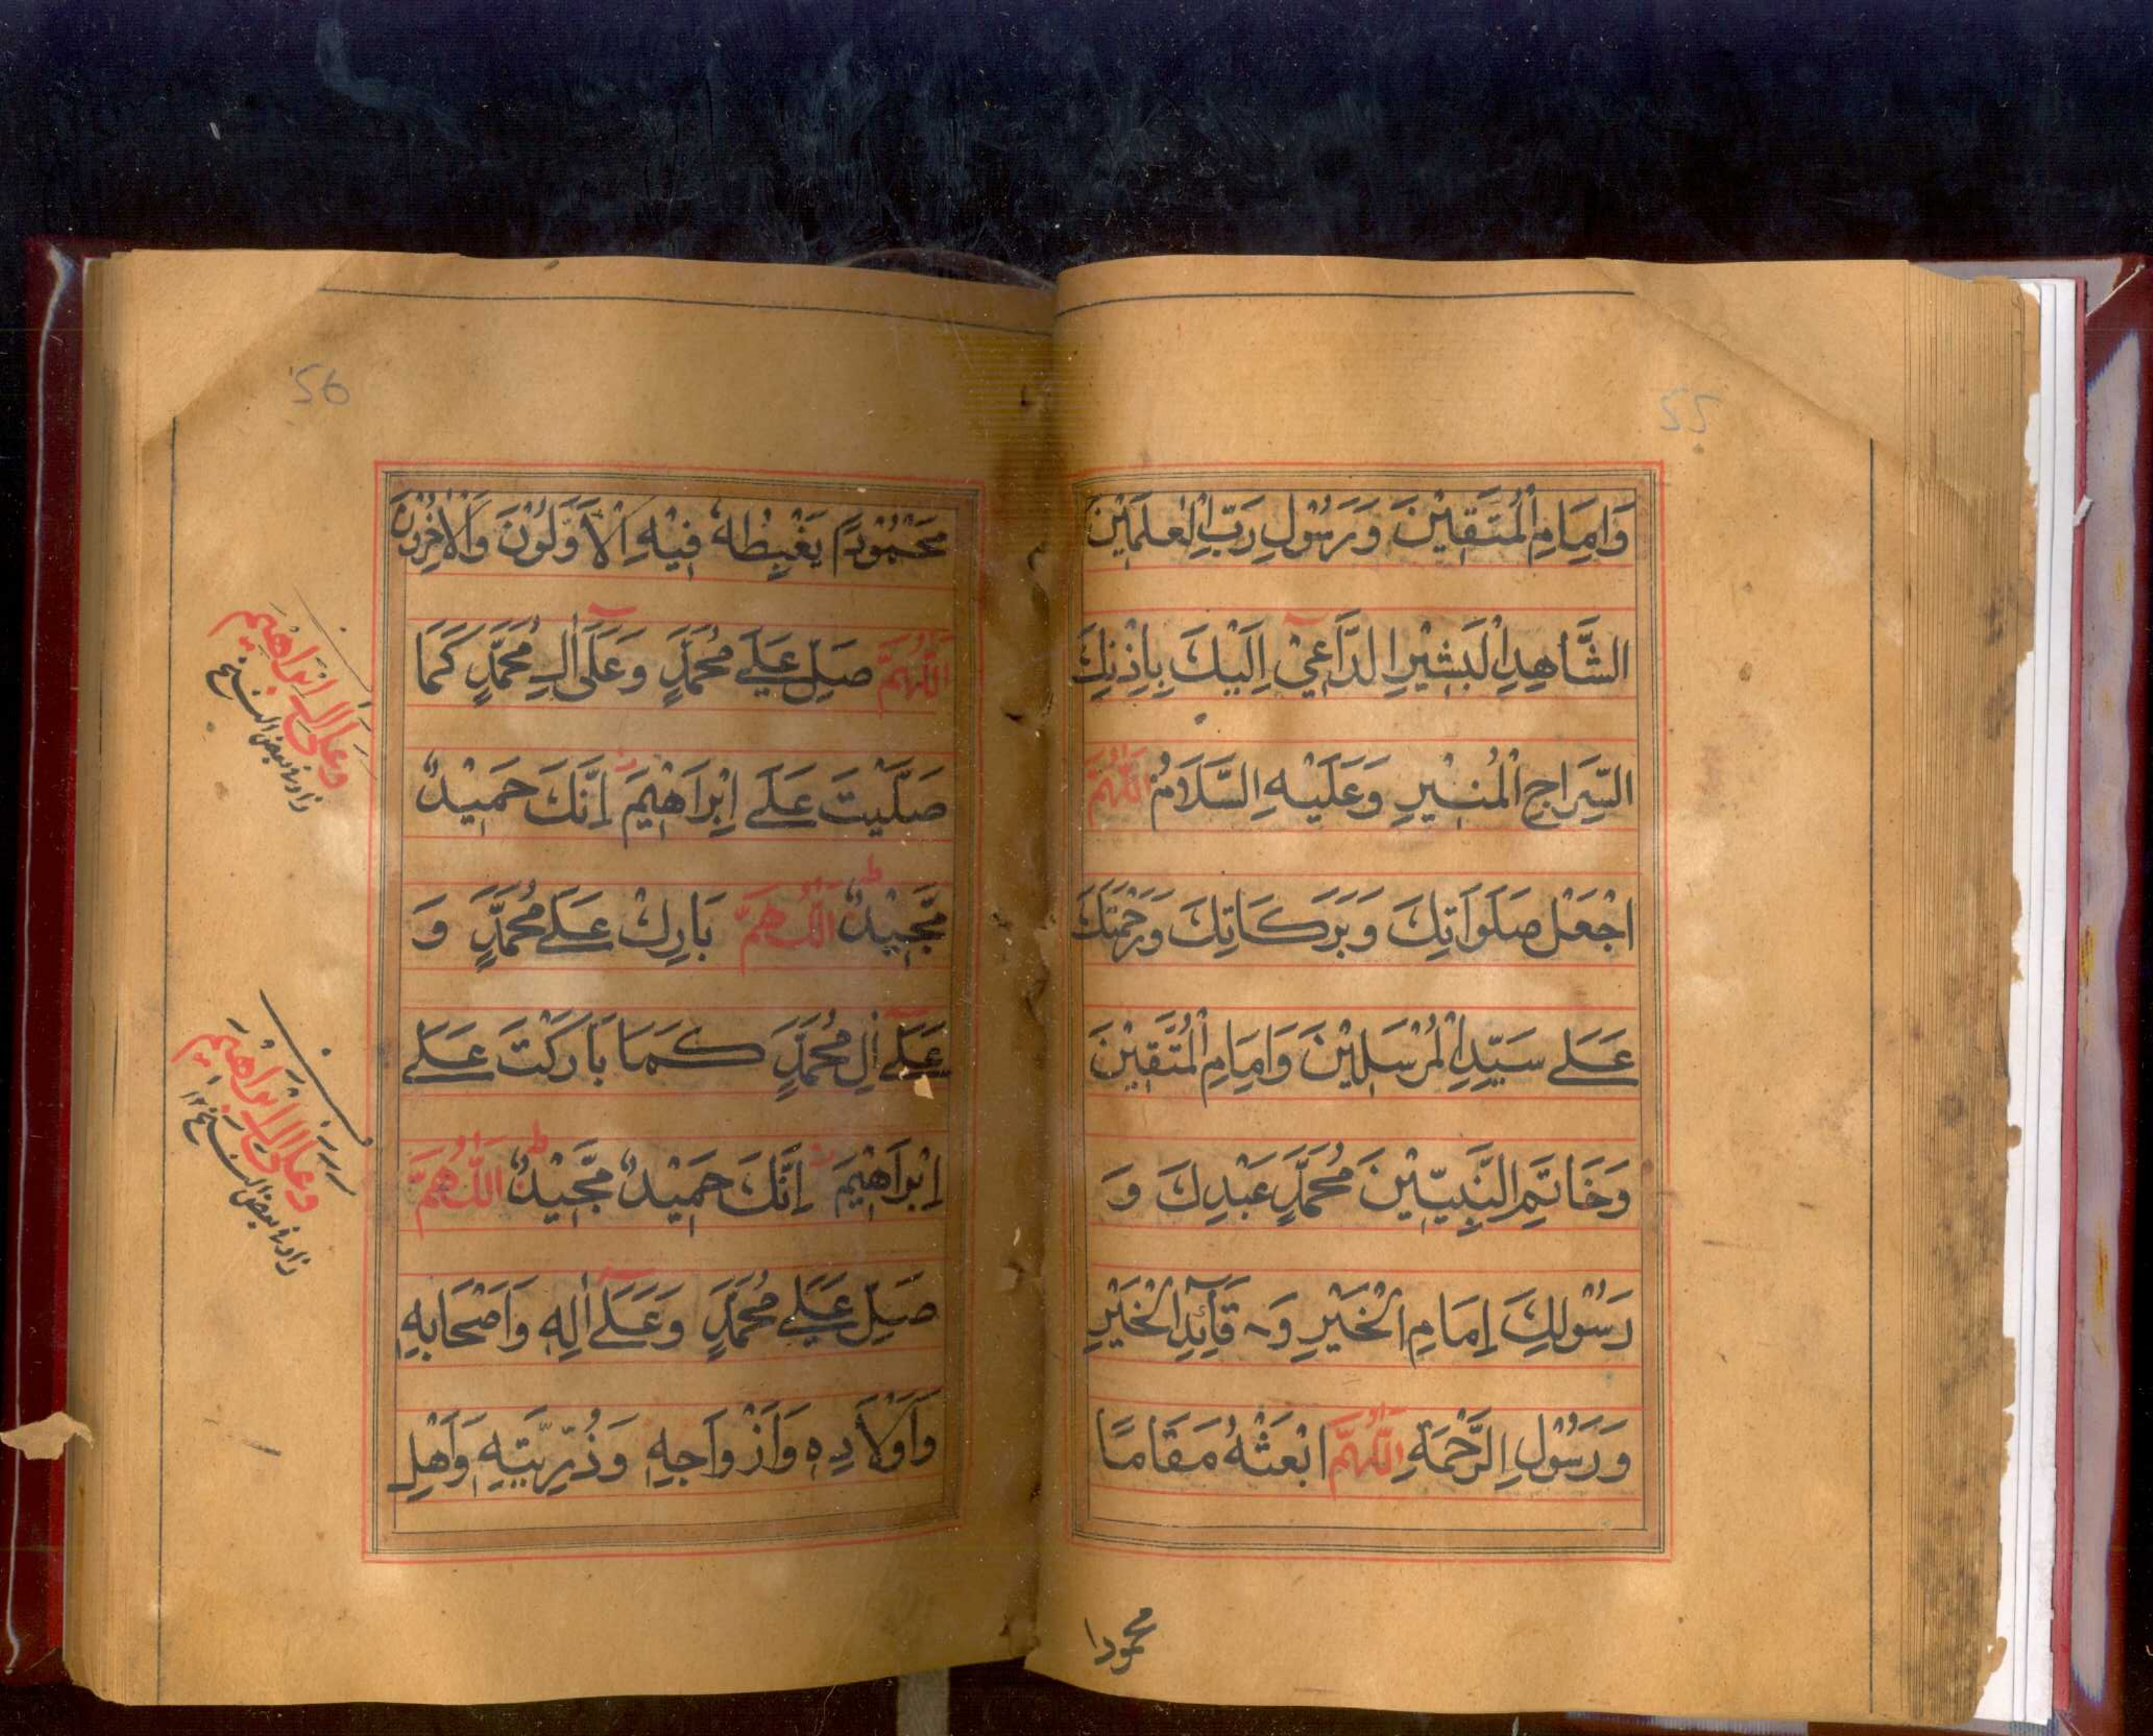 55
وَاِمَامِ الْمُتَّقِيْنَ وَرَسُوْلِ رَبِّ الْعٰلَمِيْنَ
الشَّاهِدِ الْبَشِيْرِ الدَّاعِيْ اِلَيْكَ بِاِذْنِكَ
السِّرَاجِ الْمُنِيْرِ وَعَلَيْهِ السَّلَامُ اَللّٰهُمَّ
اجْعَلْ صَلَوَاتِكَ وَبَرَكَاتِكَ وَرَحْمَتَكَ
عَلٰے سَيِّدِ الْمُرْسَلِيْنَ وَاِمَامِ الْمُتَّقِيْنَ
وَخَاتَمِ النَّبِيّٖنَ مُحَمَّدٍ عَبْدِكَ وَ
رَسُوْلِكَ اِمَامِ الْخَيْرِ وَ قَآئِدِ الْخَيْرِ
وَرَسُوْلِ الرَّحْمَةِ اَللّٰهُمَّ ابْعَثْهُ مَقَامًا
محمودا
56
مَحْمُوْدًا يَغْبِطُهٗ فِيْهِ الْاَوَّلُوْنَ وَالْاٰخِرُوْنَ
اَللّٰهُمَّ صَلِّ عَلٰے مُحَمَّدٍ وَعَلٰٓى اٰلِ مُحَمَّدٍ كَمَا
صَلَّيْتَ عَلٰے اِبْرَاهِيْمَ اِنَّكَ حَمِيْدٌ
مَّجِيْدٌ ط اَللّٰهُمَّ بَارِكْ عَلٰے مُحَمَّدٍ وَ
عَلٰٓے اٰلِ مُحَمَّدٍ كَمَا بَارَكْتَ عَلٰے
اِبْرَاهِيْمَ اِنَّكَ حَمِيْدٌ مَّجِيْدٌ ط اَللّٰهُمَّ
صَلِّ عَلٰے مُحَمَّدٍ وَعَلٰٓے اٰلِهٖ وَاَصْحَابِهٖ
وَاَوْلَادِهٖ وَاَزْوَاجِهٖ وَذُرِّيَّتِهٖ وَاَهْلِ
وَعَلٰٓى اٰلِ اِبْرَاهِيْمَ
زاد فى بعض النسخ
وَعَلٰٓى اٰلِ اِبْرَاهِيْمَ
زاد فى بعض النسخ ١٢